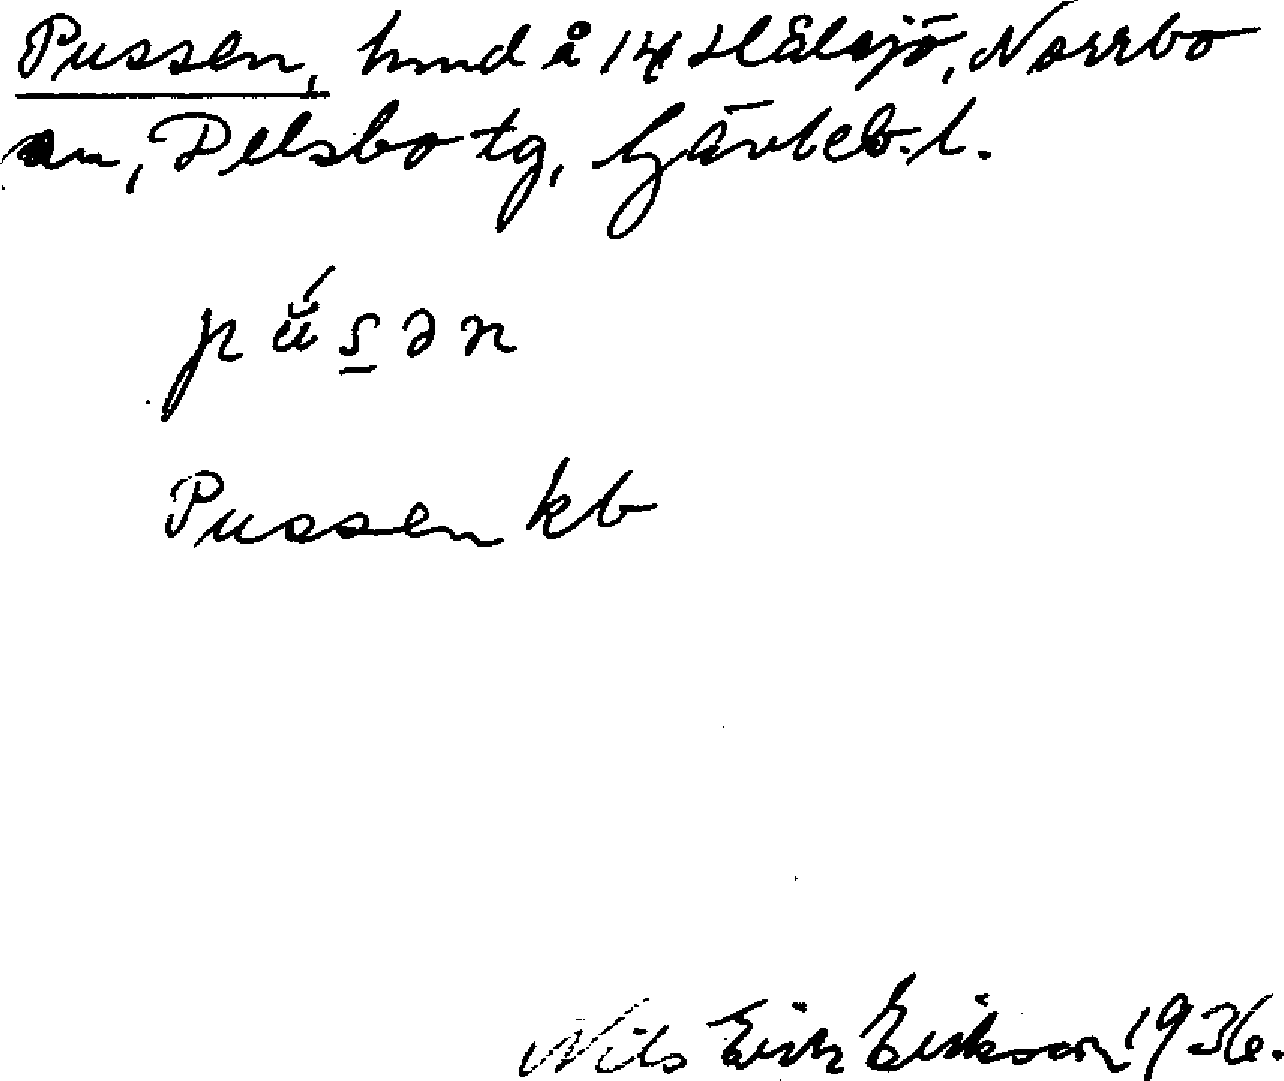 Pussen, hmd å 1/4 Hålsjö, Norrbo
sn, Delsbo tg, Gävleb. l.
pŭ́s̲ən
Pussen kb
Nils Erik Eriksson 1936.